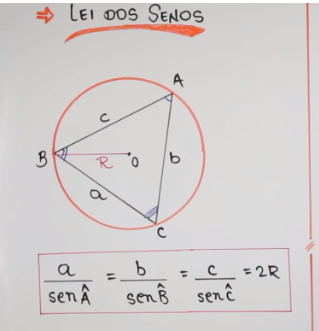 ⇒ LEI DOS SENOS
A
c
B
R
O
b
a
C
a/senÂ = b/senB̂ = c/senĈ = 2R